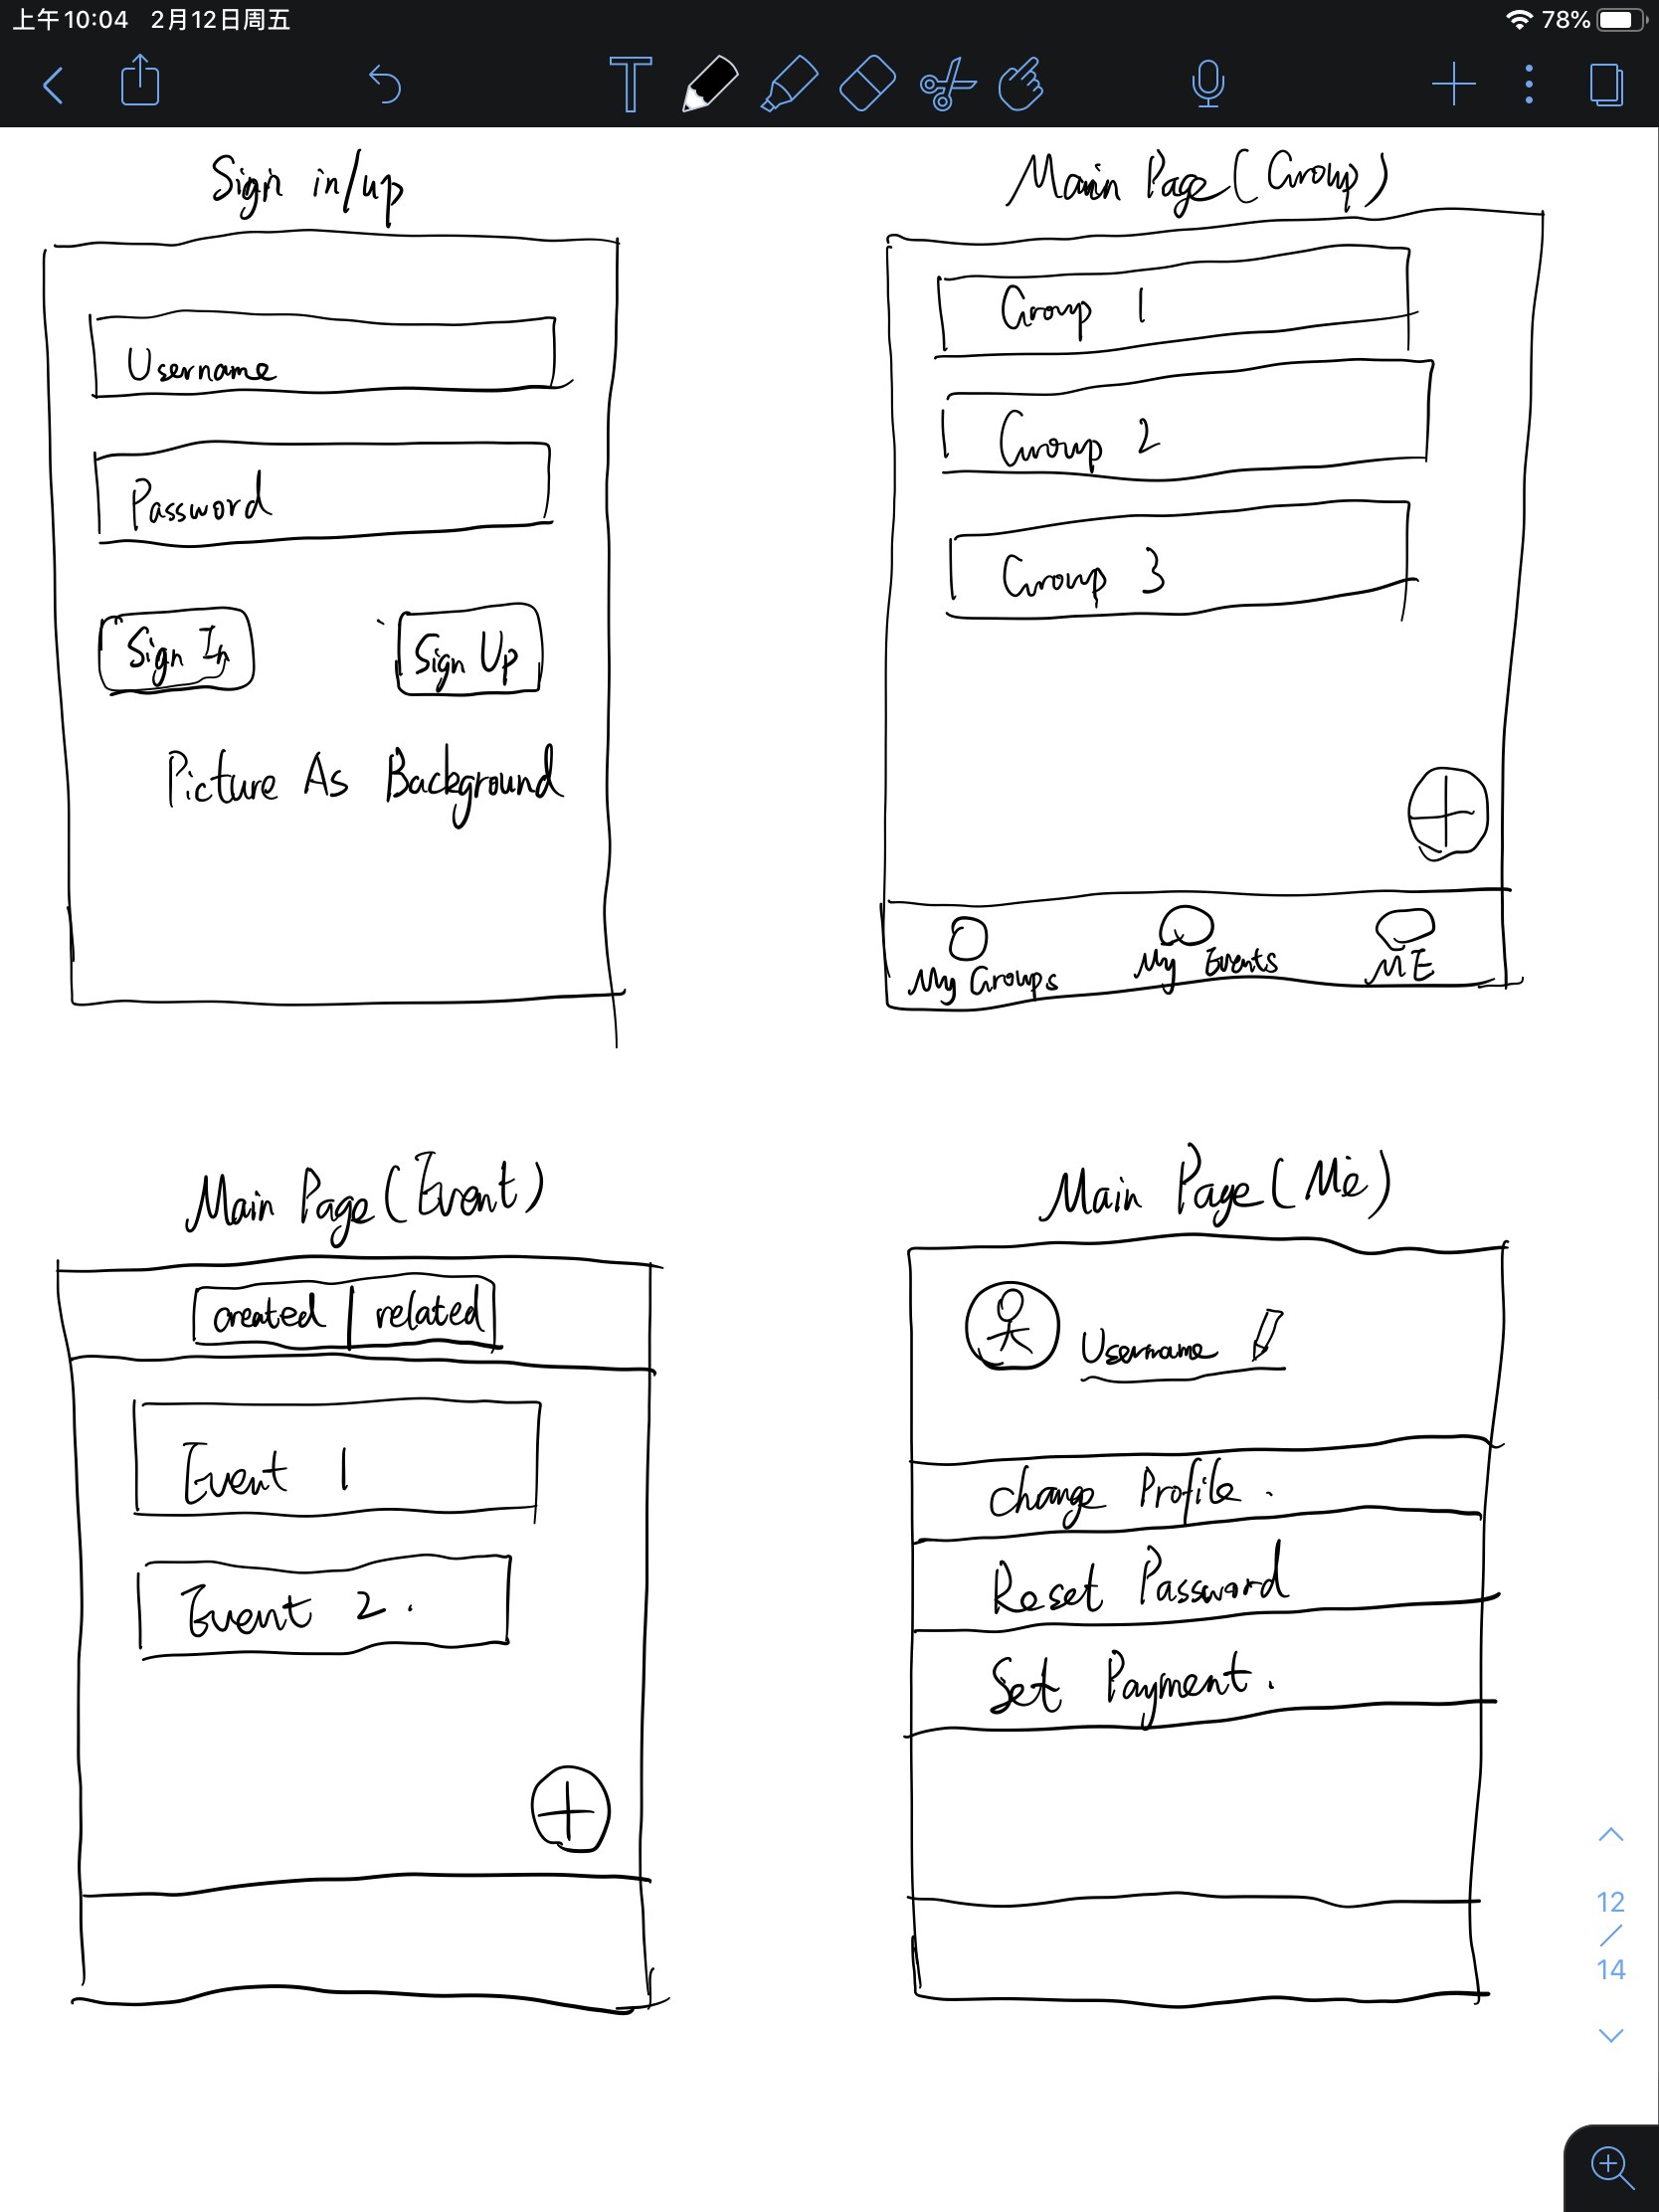 上午10:04 2月12日周五
78%
Sign in/up
Username
Password
Sign In
Sign Up
Picture As Background
Main Page (Group)
Group 1
Group 2
Group 3
My Groups
My Events
ME
Main Page (Event)
created
related
Event 1
Event 2.
Main Page (Me)
Username
Change Profile.
Reset Password
Set Payment.
12
/
14